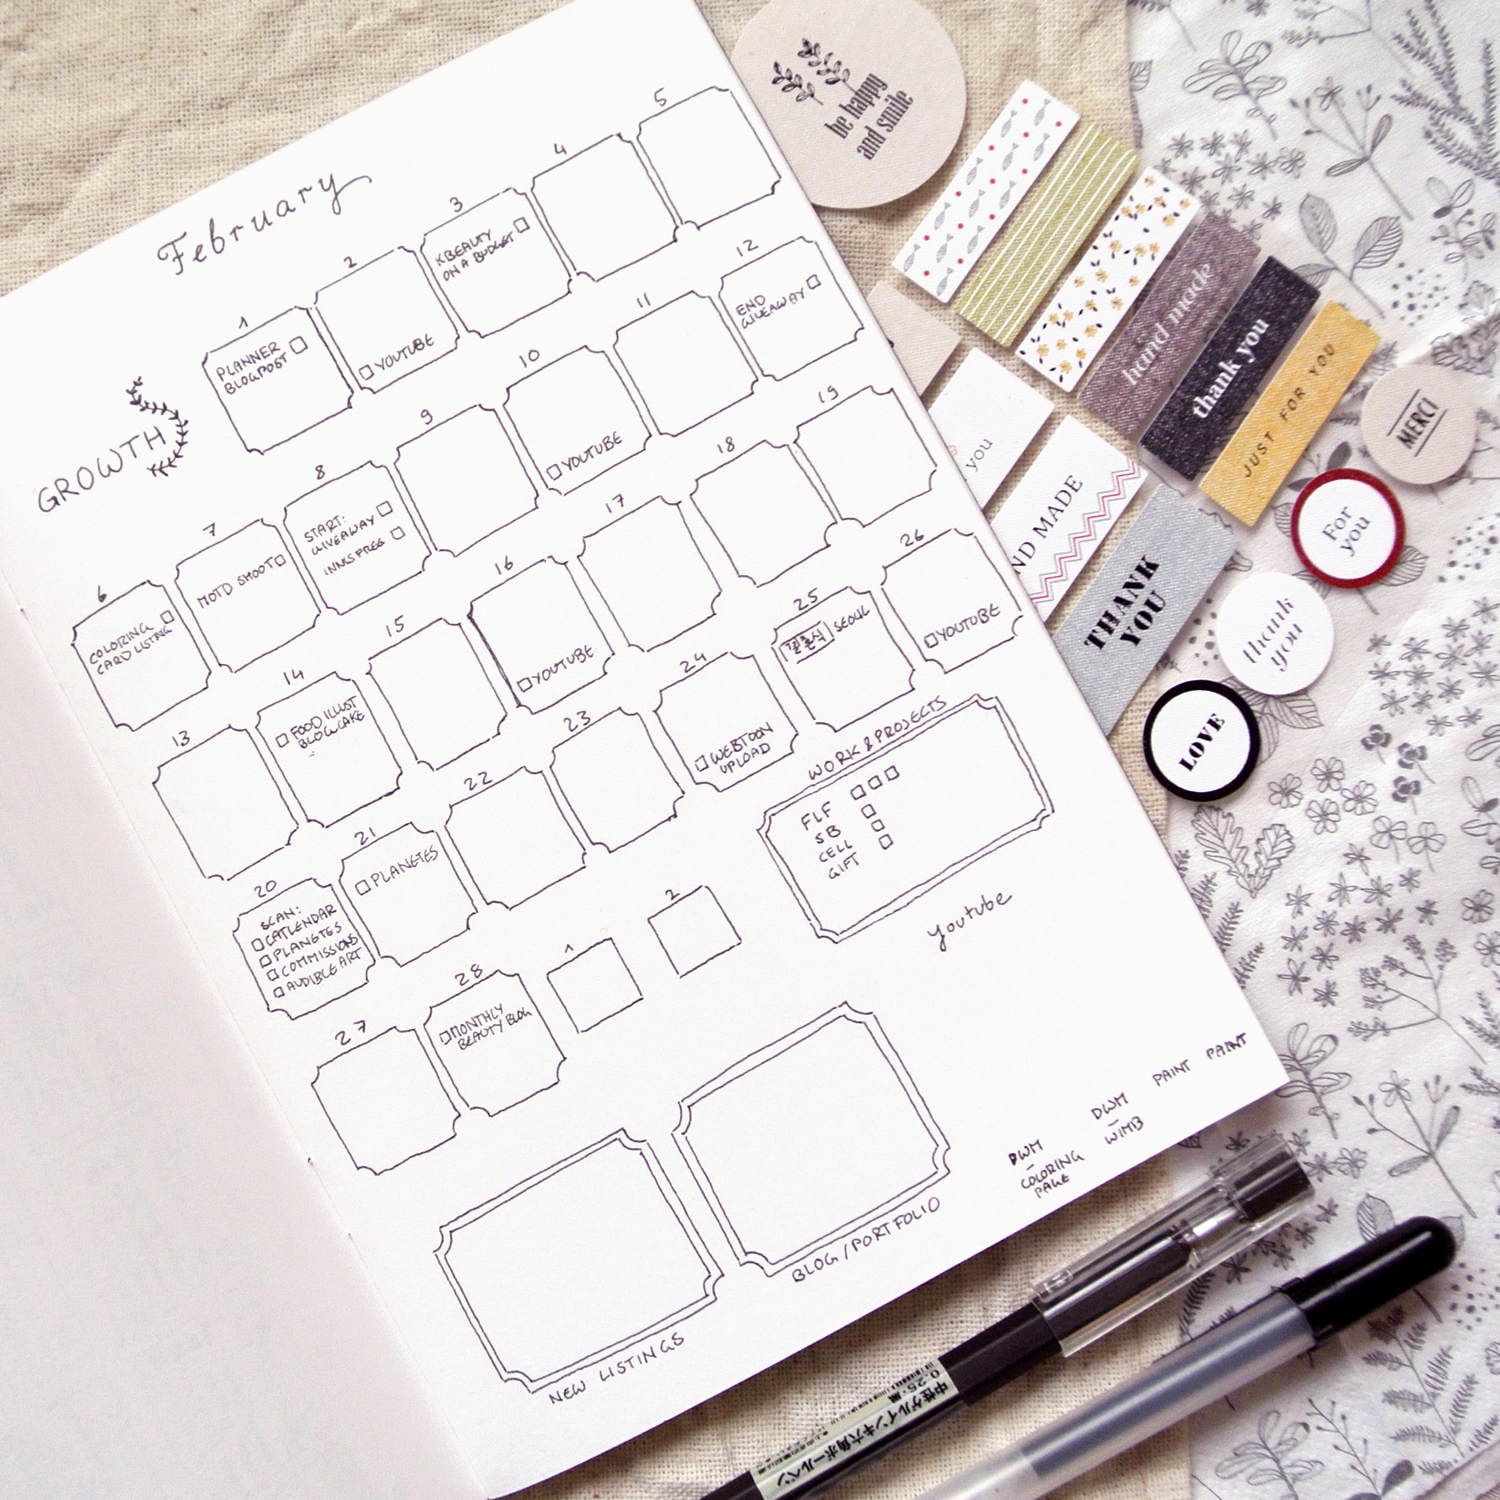 February
GROWTH
1
PLANNER
BLOGPOST
2
YOUTUBE
3
KBEAUTY
ON A BUDGET
4
5
6
COLORING
CARD LISTING
7
MOTD SHOOT
8
START:
GIVEAWAY
INNISFREE
9
10
YOUTUBE
11
12
END
GIVEAWAY
13
14
FOOD ILLUST
BLOWCAKE
15
16
YOUTUBE
17
18
19
20
SCAN:
CATLENDAR
PLANETES
COMMISSIONS
AUDIBLE ART
21
PLANETES
22
23
24
WEBTOON
UPLOAD
25
SEOUL
26
YOUTUBE
27
28
MONTHLY
BEAUTY BLOG
1
2
WORK & PROJECTS
FLF
SB
CELL
GIFT
youtube
NEW LISTINGS
BLOG/PORTFOLIO
DWM
-
COLORING
PAGE
DWM
-
WIMB
PAINT
PAINT
be happy
and smile
hand made
thank you
JUST FOR YOU
MERCI
you
ND MADE
THANK
YOU
For
you
thank
you
LOVE
0.25・黒
中性ゲルインキ六角ボールペン